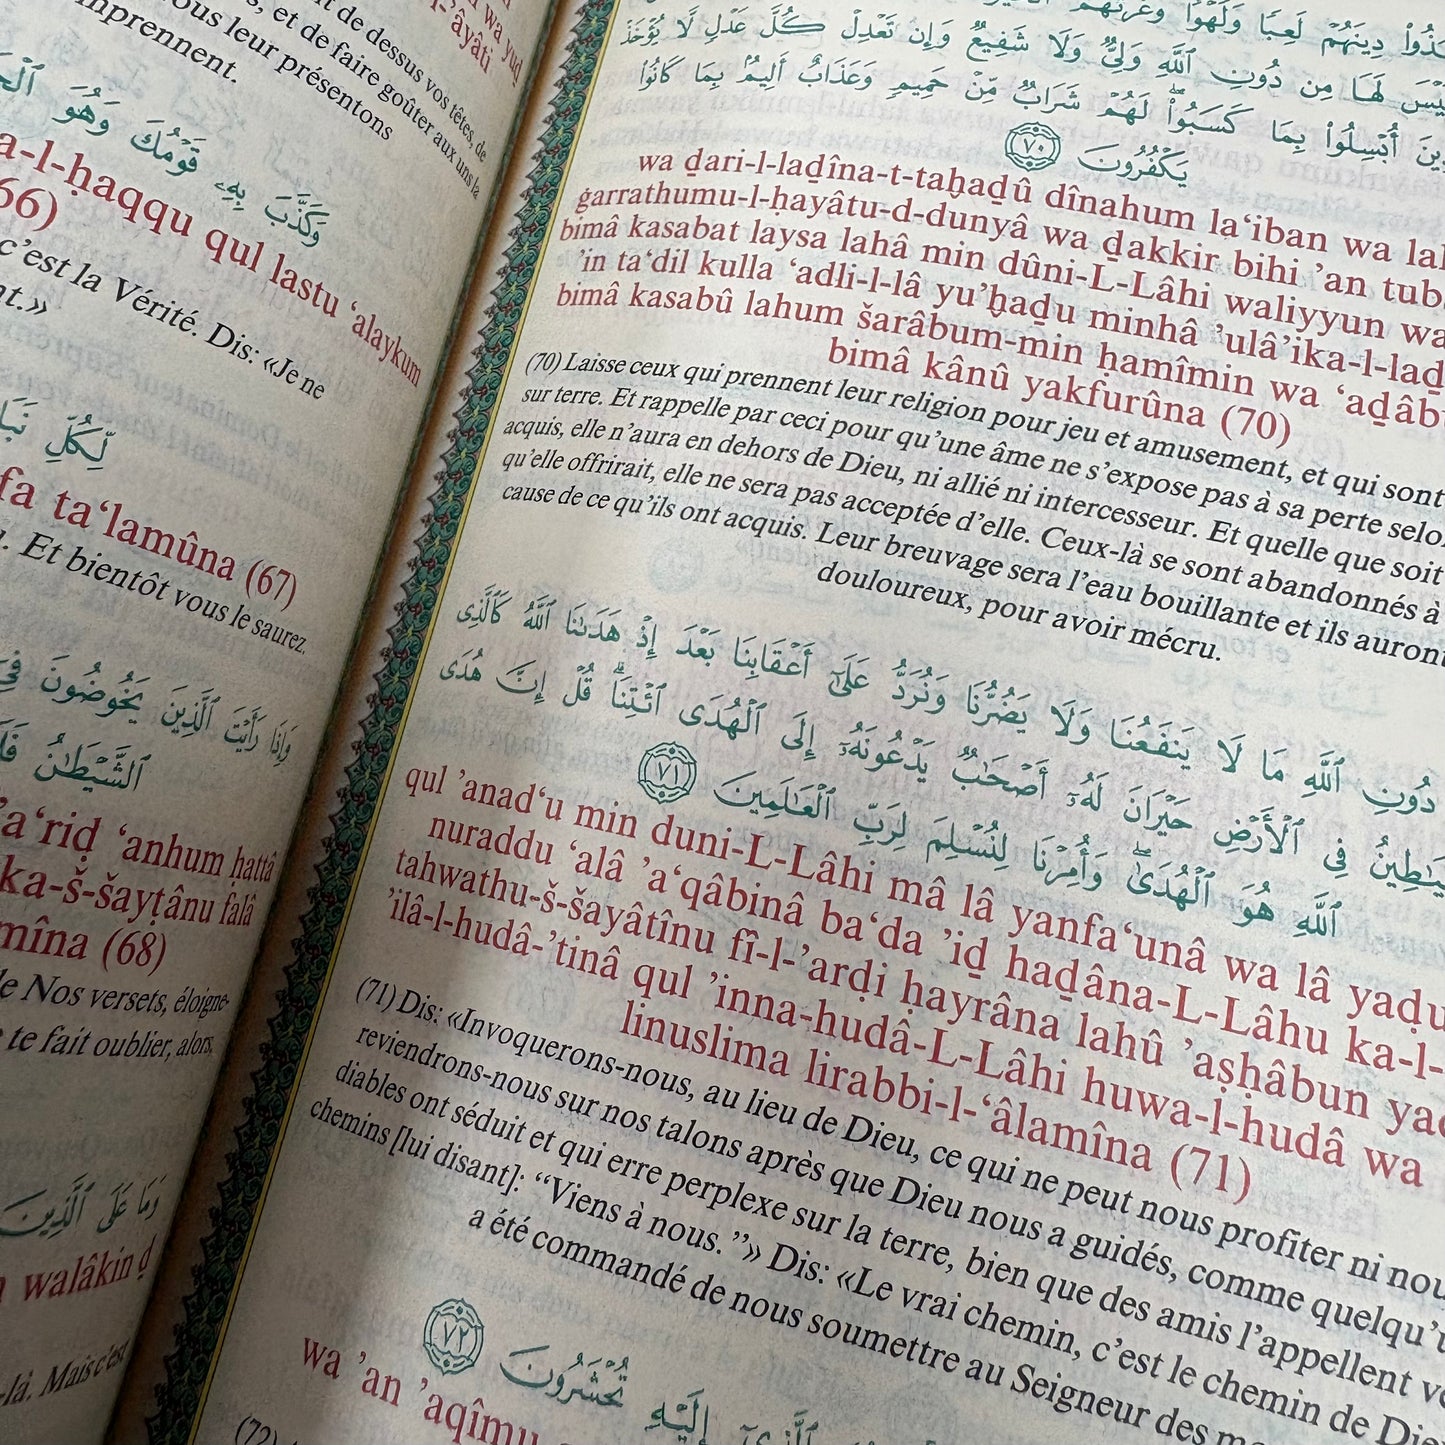 t de dessus vos têtes, de
s, et de faire goûter aux uns la
ous leur présentons
mprennent.
وَكَذَّبَ بِهِۦ قَوْمُكَ وَهُوَ
a-l-ḥaqqu qul lastu ‘alaykum
66)
c’est la Vérité. Dis: «Je ne
nt.»
لِّكُلِّ
fa ta‘lamûna (67)
. Et bientôt vous le saurez.
وَإِذَا رَأَيْتَ ٱلَّذِينَ يَخُوضُونَ فِىٓ
ٱلشَّيْطَـٰنُ
’a‘riḍ ‘anhum ḥattâ
ka-š-šayṭânu falâ
mîna (68)
e Nos versets, éloigne-
te fait oublier, alors,
وَمَا عَلَى ٱلَّذِينَ
walâkin ḏ
-là. Mais c’est
دِينَهُمْ لَعِبًا وَلَهْوًا وَغَرَّتْهُمُ
لَيْسَ لَهَا مِن دُونِ ٱللَّهِ وَلِىٌّ وَلَا شَفِيعٌ وَإِن تَعْدِلْ كُلَّ عَدْلٍ لَّا يُؤْخَذْ
أُبْسِلُوا۟ بِمَا كَسَبُوا۟ ۖ لَهُمْ شَرَابٌ مِّنْ حَمِيمٍ وَعَذَابٌ أَلِيمٌۢ بِمَا كَانُوا۟
يَكْفُرُونَ ٧٠
wa ḏari-l-laḏîna-t-taḫaḏû dînahum la‘iban wa
ġarrathumu-l-ḥayâtu-d-dunyâ wa ḏakkir bihi ’an
bimâ kasabat laysa lahâ min dûni-L-Lâhi waliyyun wa
’in ta‘dil kulla ‘adli-l-lâ yu’ḫaḏu minhâ ’ulâ’ika-l-laḏ
bimâ kasabû lahum šarâbum-min ḥamîmin wa ‘aḏâb
bimâ kânû yakfurûna (70)
(70) Laisse ceux qui prennent leur religion pour jeu et amusement, et qui sont
sur terre. Et rappelle par ceci pour qu’une âme ne s’expose pas à sa perte selo
acquis, elle n’aura en dehors de Dieu, ni allié ni intercesseur. Et quelle que soit
qu’elle offrirait, elle ne sera pas acceptée d’elle. Ceux-là se sont abandonnés à
cause de ce qu’ils ont acquis. Leur breuvage sera l’eau bouillante et ils auront
douloureux, pour avoir mécru.
دُونِ ٱللَّهِ مَا لَا يَنفَعُنَا وَلَا يَضُرُّنَا وَنُرَدُّ عَلَىٰٓ أَعْقَابِنَا بَعْدَ إِذْ هَدَىٰنَا ٱللَّهُ كَٱلَّذِى
فِى ٱلْأَرْضِ حَيْرَانَ لَهُۥٓ أَصْحَـٰبٌ يَدْعُونَهُۥٓ إِلَى ٱلْهُدَى ٱئْتِنَا ۗ قُلْ إِنَّ هُدَى
ٱللَّهِ هُوَ ٱلْهُدَىٰ ۖ وَأُمِرْنَا لِنُسْلِمَ لِرَبِّ ٱلْعَـٰلَمِينَ ٧١
qul ’anad‘u min duni-L-Lâhi mâ lâ yanfa‘unâ wa lâ yaḍu
nuraddu ‘alâ ’a‘qâbinâ ba‘da ’iḏ haḏâna-L-Lâhu ka-l-
tahwathu-š-šayâtînu fî-l-’arḍi ḥayrâna lahû ’aṣḥâbun
’ilâ-l-hudâ-’tinâ qul ’inna-hudâ-L-Lâhi huwa-l-hudâ wa
linuslima lirabbi-l-‘âlamîna (71)
(71) Dis: «Invoquerons-nous, au lieu de Dieu, ce qui ne peut nous profiter ni nou
reviendrons-nous sur nos talons après que Dieu nous a guidés, comme quelqu’u
diables ont séduit et qui erre perplexe sur la terre, bien que des amis l’appellent
chemins [lui disant]: “Viens à nous.”» Dis: «Le vrai chemin, c’est le chemin de Die
a été commandé de nous soumettre au Seigneur des
ٱلَّذِىٓ إِلَيْهِ تُحْشَرُونَ ٧٢
wa ’an ’aqîmu
(72)